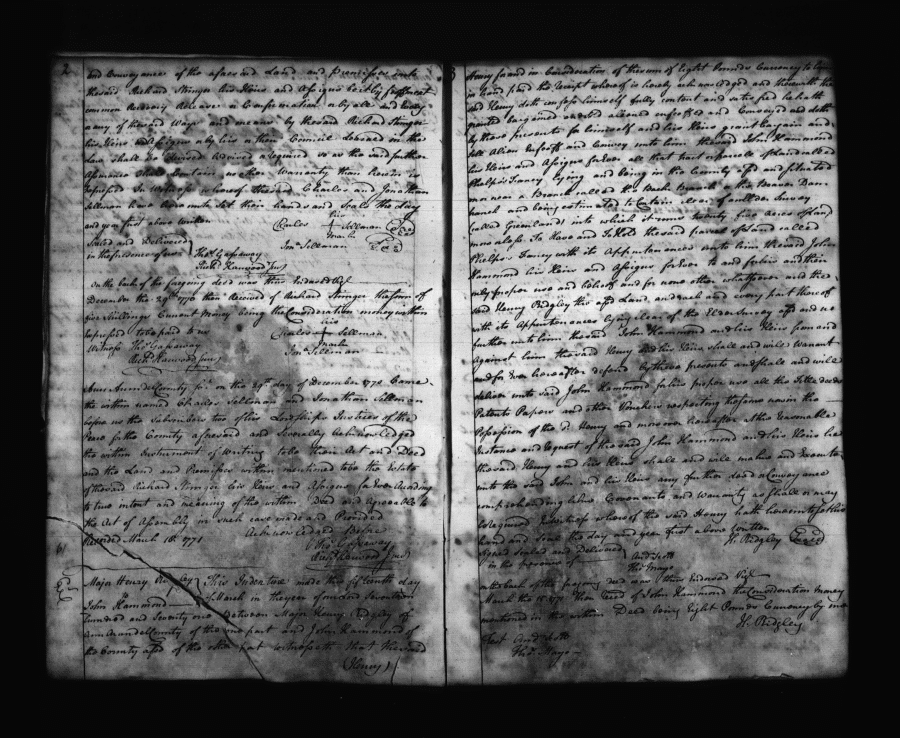 2
and Conveyance of the aforesaid Land and premises unto
the said Richard Stringer his Heirs and Assigns be it by Feoffment
common Recovery Release or Confirmation or by all and every
or any of the said Ways and means by the said Richard Stringer
his Heirs or Assigns or by his or their Council learned in the
Law shall be devised advised or required so as the said further
Assurance shall Contain no other Warranty than herein is
expressed In Witness whereof the said Charles and Jonathan
Sellman have hereunto set their hands and Seals the day
and year first above written
his
Charles + Sellman Seal
mark
Jona. Sellman Seal
Sealed and Delivered
in the presence of us
Thos. Gassaway
Richd. Harwood Junr
on the back of the foregoing deed was thus Endorsed Vizt
December the 29th 1770 then Received of Richard Stringer the sum of
five Shillings Current Money being the Consideration money within
expressed to be paid to us
his
Charles + Sellman
mark
Jona. Sellman
Witness Thos. Gassaway
Richd. Harwood Junr
Ann Arundel County sc. on the 29th day of December 1770 Came
the within named Charles Sellman and Jonathan Sellman
before us the Subscribers two of his Lordships Justices of the
Peace for the County aforesaid and Severally Acknowledged
the within Instrument of Writing to be their Act and Deed
and the Land and Premises within mentioned to be the Estate
of the said Richard Stringer his Heirs and Assigns for Ever According
to true intent and meaning of the within Deed and Agreeable to
the Act of Assembly in such case made and Provided
Acknowledged before
Thos. Gassaway
Richd. Harwood Junr
Recorded March 18th 1771
Major Henry Ridgley
John Hammond
This Indenture made this fifteenth day
of March in the year of our Lord Seventeen
hundred and Seventy one Between Major Henry Ridgley of
Ann Arundel County of the one part and John Hammond of
the County aforesd. of the other part Witnesseth that the said
(Henry)
3
Henry for and in Consideration of the sum of Eight Pounds Currency to him
in hand paid the receipt whereof is hereby acknowledged and therewith the
said Henry doth confess himself fully content and satisfied hath
granted bargained and sold aliened enfeoffed and Conveyed and doth
by these presents for himself and his Heirs grant bargain and
sell Alien Enfeoff and Convey unto him the said John Hammond
his Heirs and Assigns for Ever all that tract or parcel of Land called
Phelps's Fancy lying and being in the County afsd and situated
on or near a Branch called the Back Branch of the Beaver Dam
branch and being estimated to Contain clear of an Elder Survey
(called Greenland) into which it runs twenty five acres of Land
more or less. To Have and To Hold the said parcel of Land called
Phelps's Fancy with its Appurtenances unto him the said John
Hammond his Heirs and Assigns for Ever to and for his and their
only proper use and behoof and for none other whatsoever and the
said Henry Ridgley the aforsd Land and each and every part thereof
with its Appurtenances lying clear of the Elder Survey aforsd and no
further unto him the said John Hammond and his Heirs from and
against him the said Henry and his Heirs shall and will Warrant
and for Ever hereafter defend by these presents and shall and will
deliver unto said John Hammond for his proper use all the Title deeds
Patents Papers and other Vouchers respecting the same now in the
Possession of the sd. Henry and moreover hereafter at the reasonable
Instance and request of the said John Hammond and his Heirs he
the said Henry and his Heirs shall and will make and Execute
unto the said John and his Heirs any further said a Conveyance
comprehending like Covenants and Warranty as shall or may
be required In witness whereof the said Henry hath hereunto set his
hand and Seal the day and year first above Written
H. Ridgley Seal
Signed Sealed and Delivered
in the presence of
And. Scott
Thos. Mayo
at the back of the foregoing deed was thus Endorsed Vizt
March the 15th 1771 then Recd. of John Hammond the Consideration money
mentioned in the within Deed being Eight Pounds Currency by me
H. Ridgley
Test And. Scott
Thos. Mayo